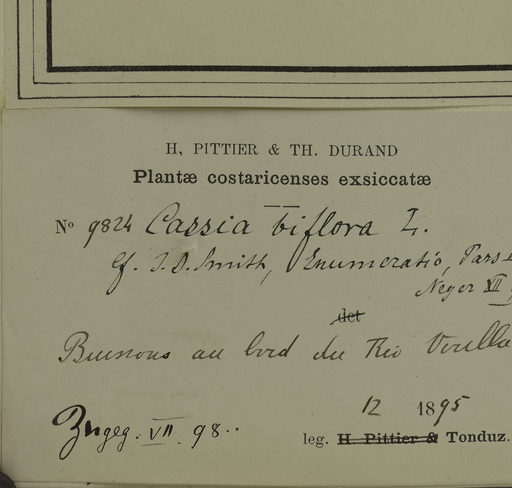 H, PITTIER & TH. DURAND
Plantæ costaricenses exsiccatæ
Nº 9824 Cassia biflora L.
cf. J. D. Smith, Enumeratio, Pars
Neger XII
det
Buissons au bord du Rio
12 1895
Zugeg. VII. 98.
leg. H. Pittier & Tonduz.